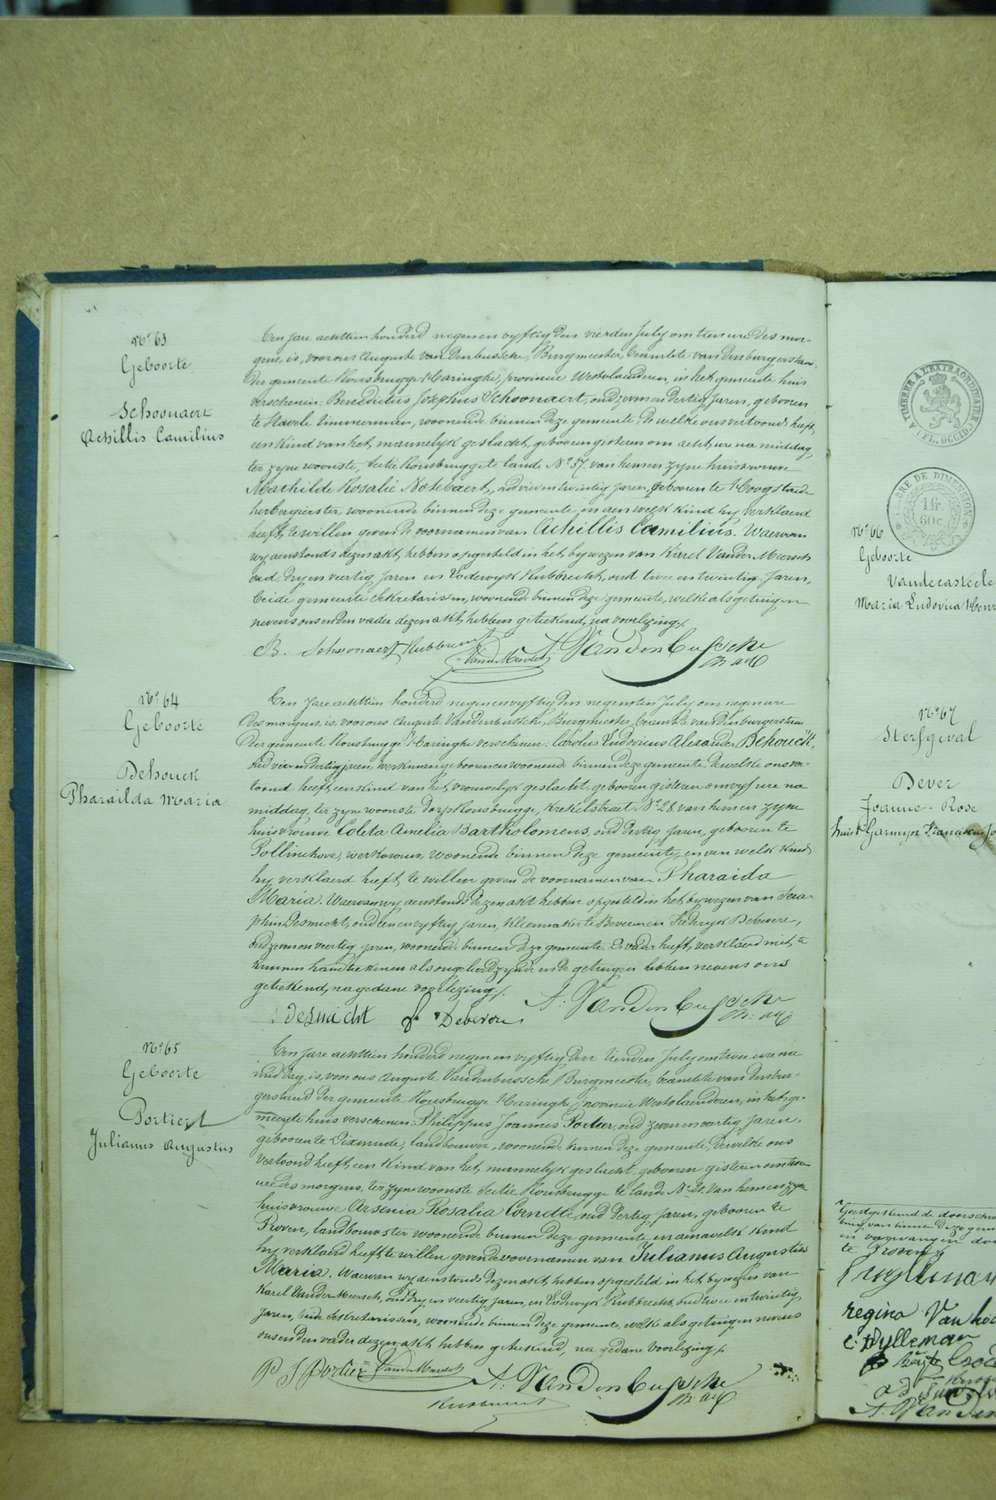 N° 63
Geboorte
Schoonaert
Achillis Camilius
Een jare achttien honderd negen en vyftig den vierden July om tien ure des mor-
gens, is, voor ons Auguste Van den bussche, Burgmeester, beambte van den burgerstand
der gemeente Rousbrugge-Haringhe, provincie Westvlaenderen, in het gemeente huis
verschenen Benedictus Josephus Schoonaert, oud zeven en dertig Jaren, geboren
te Stavele, timmerman, woonende binnen deze gemeente, de welke ons vertoond heeft,
een kind van het mannelyk geslacht, geboren gisteren om acht ure na middag,
ter zyne woonste, sectie Rousbrugge te lande N° 37, van hem en zyne huisvrouw
Mathilde Rosalie Notebaert, oud en twintig Jaren, geboren te Hoogstade
herbergierster woonende binnen deze gemeente, en aen welk kind hy verklaerd
heeft, te willen geven de voornamen van Achillis Camilius. Waervan
wy aenstonds dezen akt, hebben opgesteld in het bywezen van Karel Vander Meersch
oud dry en veertig Jaren en Lodewyk Rubbrecht, oud twee en twintig Jaren,
beide gemeente sekretarissen, woonende binnen deze gemeente, welke als getuigen
nevens ons en den vader dezen akt, hebben geteekend, na voorlezing.
B. Schoonaert Rubbrecht VanderMeersch A. Vandenbussche
N° 64
Geboorte
Dehouck
Pharaïlda Maria
Een Jare achttien honderd negen en vyftig den negensten July om negen ure
des morgens, is voor ons Auguste Vandenbussche, Burgmeester, beambte van den burgerstand
der gemeente Rousbrugge Haringhe verschenen Carolus Ludovicus Alexander Dehouck,
oud vier en dertig jaren, werkman geboren en woonende binnen deze gemeente dewelke ons ver-
toond heeft, een kind van het vrouwelyk geslacht, geboren gisteren om vyf ure na
middag, ter zyne woonste Dorp Rousbrugge, Krekelstraet N° 28 van hem en zyne
huisvrouwe Coleta Amelia Bartholomeus, oud dertig Jaren, geboren te
Pollinchove, werkvrouw, woonende binnen deze gemeente, en aen welk kind
hy verklaerd heeft, te willen geven de voornamen van Pharaïlda
Maria. Waervan wy aenstonds dezen akt hebben opgesteld in het bywezen van Sera-
phin Desmacht, oud een en vyftig jaren, te Beveren en Lodewyk Debevere,
oud zeven en veertig jaren, woonende binnen deze gemeente. De vader heeft verklaerd niet te
kunnen handteekenen als ongeleerd zynde en de getuigen hebben nevens ons
geteekend, na gedane voorlezing.
Desmacht Debevere A. Vandenbussche
N° 65
Geboorte
Portier
Julianus Augustus
Een jare achttien honderd negen en vyftig den tienden July om twee ure na
middag, is, voor ons Auguste Vandenbussche Burgmeester, beambte van den bur-
gerstand der gemeente Rousbrugge Haringhe, provincie Westvlaenderen, in het ge-
meente huis verschenen Philippus Joannes Portier, oud zeven en veertig Jaren,
geboren te Dixmude, landbouwer, woonende binnen deze gemeente, dewelke ons
vertoond heeft, een kind van het mannelyk geslacht, geboren gisteren om twee
ure des morgens, ter zyne woonste sectie Rousbrugge te lande N° 21, van hem en zyne
huisvrouwe Arsenia Rosalia Cornette, oud dertig Jaren, geboren te
Proven, landbouwster woonende binnen deze gemeente en aen welk kind
hy verklaerd heeft te willen geven de voornamen van Julianus Augustus
Maria. Waervan wy aenstonds dezen akt, hebben opgesteld in het bywezen van
Karel VanderMeersch, oud dry en veertig jaren, en Lodewyk Rubbrecht oud twee en twintig
Jaren, beide sekretarissen, woonende binnen deze gemeente, welke als getuigen nevens
ons en den vader dezen akt hebben geteekend, na gedane voorlezing.
P J Portier VanderMeersch A. Vandenbussche
Rubbrecht
TIMBRE A L'EXTRAORDINAIRE
FL. OCCID.
TIMBRE DE DIMENSION
1 fr.
60 c.
N° 66
Geboorte
Vandecasteele
Maria Ludovica Hen
N° 67
Sterfgeval
Dever
Joanna-Rose
huis Garmyn Franciscus Jo
Goedgekeurd de doorsch
te Proven
regina Van hou
C. Dylleman
A. Vanden